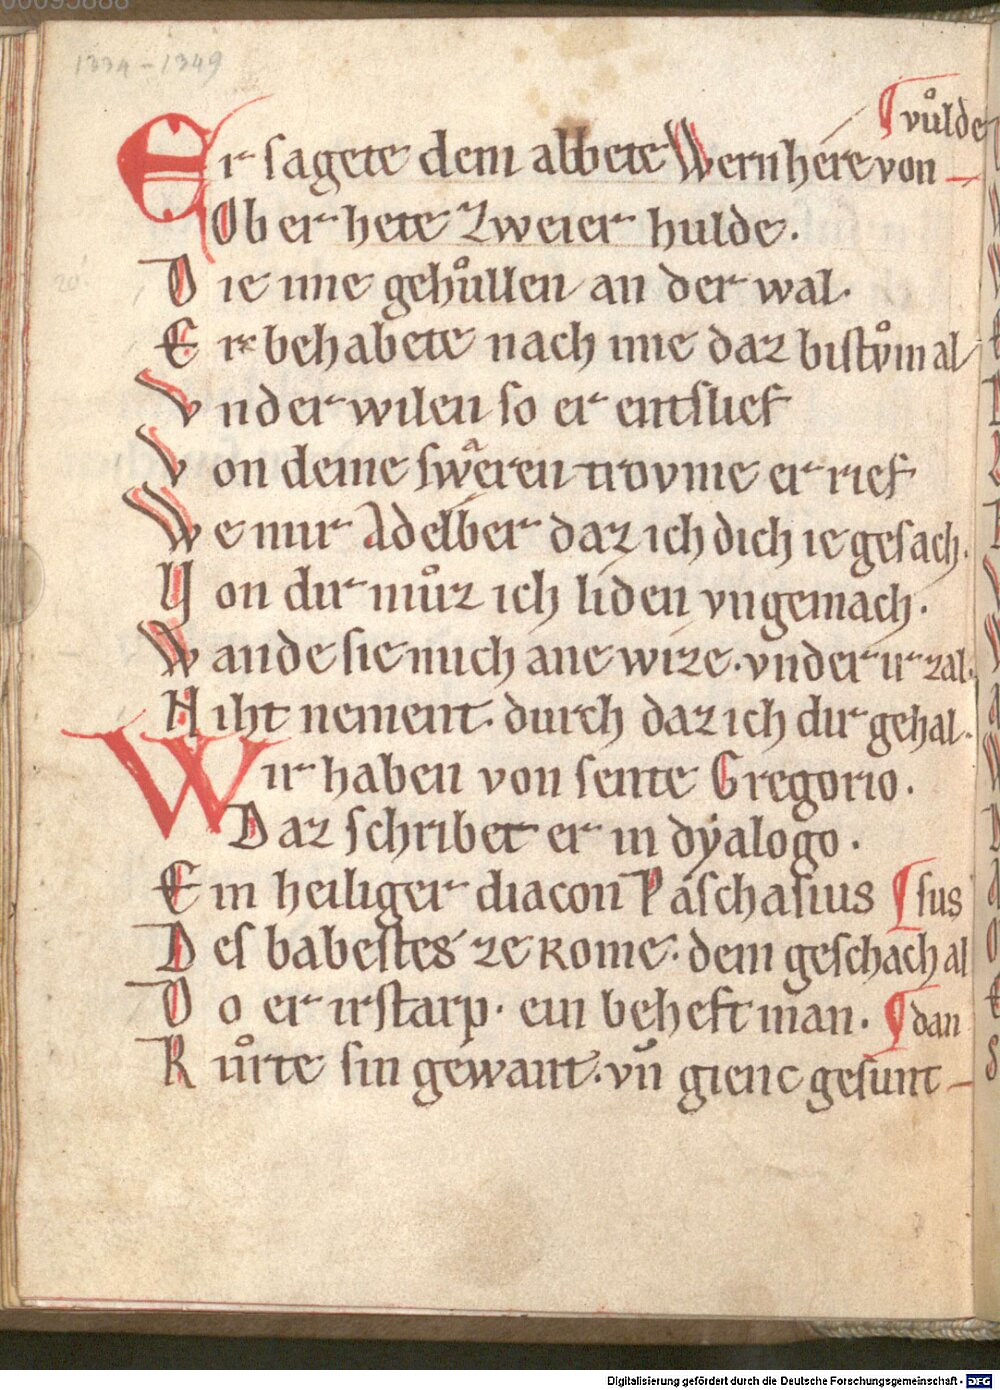 00095888
1334 - 1349
¶ vůlde
Er sagete dem abbete Wernhere von –
Ob er hete zweier hulde.
Die ime gehůllen an der wal.
Er behabete nach ime daz bistv̊m al
Vnder wilen so er entslief
Von deme swæren trovme er rief
We mir Adelber daz ich dich ie gesach.
Von dir můz ich liden vngemach.
Wande sie mich ane wize. vnder ir zal.
Niht nement. durch daz ich dir gehal.
Wir haben von sente Gregorio.
Daz schribet er in dÿalogo.
Ein heiliger diacon Paschasius ¶ sus
Des babestes ze Rome. dem geschach al
Do er irstarp. ein beheft man. ¶ dan
Růrte sin gewant. vn̄ gienc gesunt –
Digitalisierung gefördert durch die Deutsche Forschungsgemeinschaft - DFG